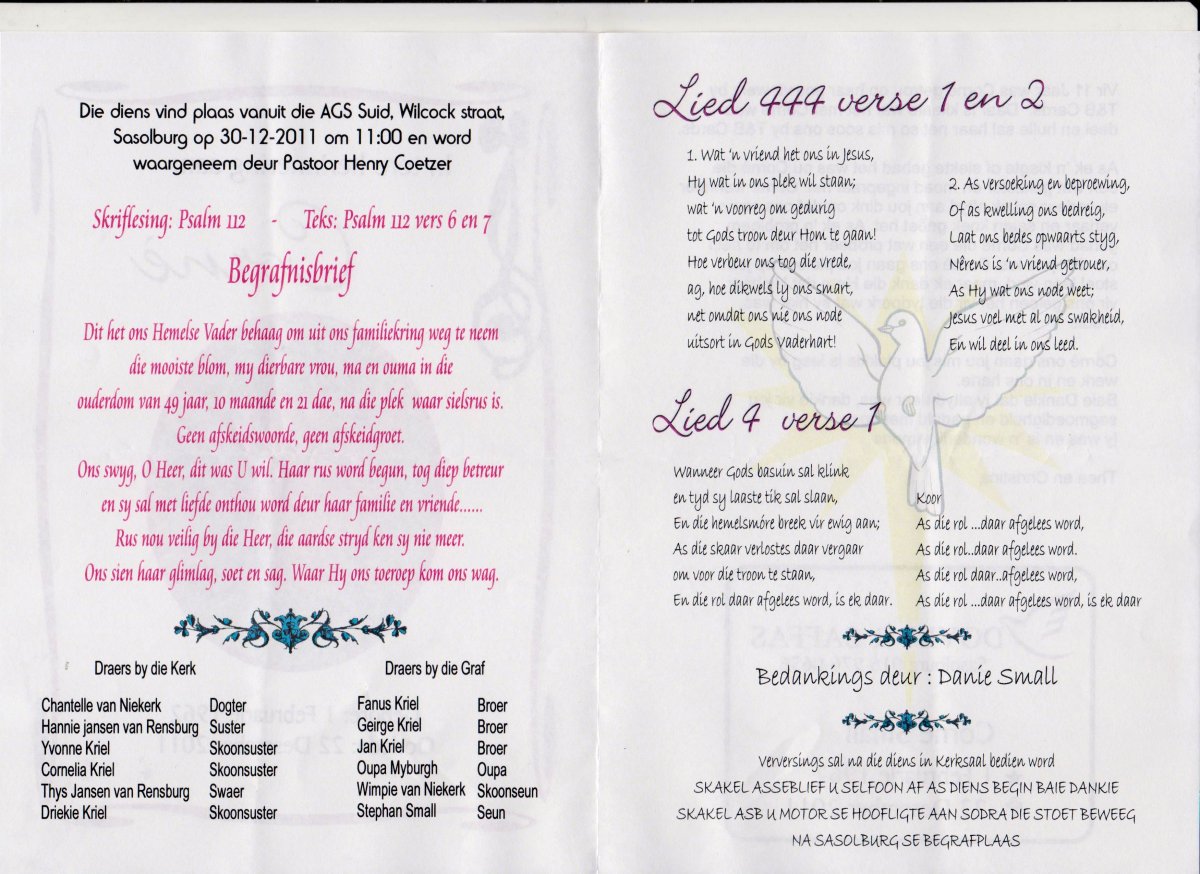 Die diens vind plaas vanuit die AGS Suid, Wilcock straat,
Sasolburg op 30-12-2011 om 11:00 en word
waargeneem deur Pastoor Henry Coetzer
Skriflesing: Psalm 112 - Teks: Psalm 112 vers 6 en 7
Begrafnisbrief
Dit het ons Hemelse Vader behaag om uit ons familiekring weg te neem
die mooiste blom, my dierbare vrou, ma en ouma in die
ouderdom van 49 jaar, 10 maande en 21 dae, na die plek waar sielsrus is.
Geen afskeidswoorde, geen afskeidgroet.
Ons swyg, O Heer, dit was U wil. Haar rus word begun, tog diep betreur
en sy sal met liefde onthou word deur haar familie en vriende......
Rus nou veilig by die Heer, die aardse stryd ken sy nie meer.
Ons sien haar glimlag, soet en sag. Waar Hy ons toeroep kom ons wag.
Draers by die Kerk
Chantelle van Niekerk Dogter
Hannie jansen van Rensburg Suster
Yvonne Kriel Skoonsuster
Cornelia Kriel Skoonsuster
Thys Jansen van Rensburg Swaer
Driekie Kriel Skoonsuster
Draers by die Graf
Fanus Kriel Broer
Geirge Kriel Broer
Jan Kriel Broer
Oupa Myburgh Oupa
Wimpie van Niekerk Skoonseun
Stephan Small Seun
Lied 444 verse 1 en 2
1. Wat 'n vriend het ons in Jesus,
Hy wat in ons plek wil staan;
wat 'n voorreg om gedurig
tot Gods troon deur Hom te gaan!
Hoe verbeur ons tog die vrede,
ag, hoe dikwels ly ons smart,
net omdat ons nie ons node
uitsort in Gods Vaderhart!
2. As versoeking en beproewing,
Of as kwelling ons bedreig,
Laat ons bedes opwaarts styg,
Nêrens is 'n vriend getrouer,
As Hy wat ons node weet;
Jesus voel met al ons swakheid,
En wil deel in ons leed.
Lied 4 verse 1
Wanneer Gods basuin sal klink
en tyd sy laaste tik sal slaan,
En die hemelsmóre breek vir ewig aan;
As die skaar verlostes daar vergaar
om voor die troon te staan,
En die rol daar afgelees word, is ek daar.
Koor
As die rol ...daar afgelees word,
As die rol..daar afgelees word.
As die rol daar..afgelees word,
As die rol ...daar afgelees word, is ek daar
Bedankings deur : Danie Small
Verversings sal na die diens in Kerksaal bedien word
SKAKEL ASSEBLIEF U SELFOON AF AS DIENS BEGIN BAIE DANKIE
SKAKEL ASB U MOTOR SE HOOFLIGTE AAN SODRA DIE STOET BEWEEG
NA SASOLBURG SE BEGRAFPLAAS